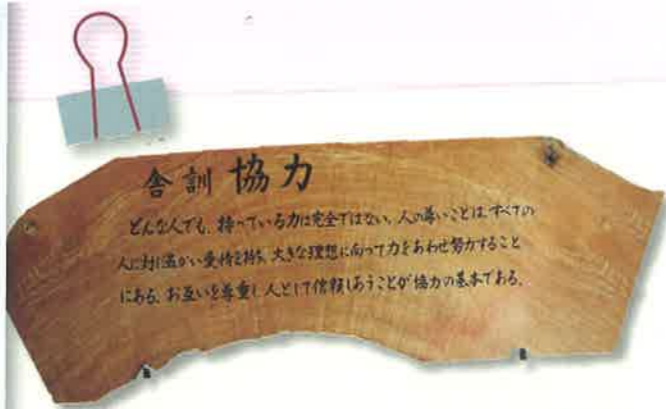 舎訓 協力
どんな人でも、持っている力は完全ではない。人の尊いことは、すべての
人に対し温かい愛情を持ち、大きな理想に向って力をあわせ努力すること
にある。お互いを尊重し人として信頼しあうことが協力の基本である。